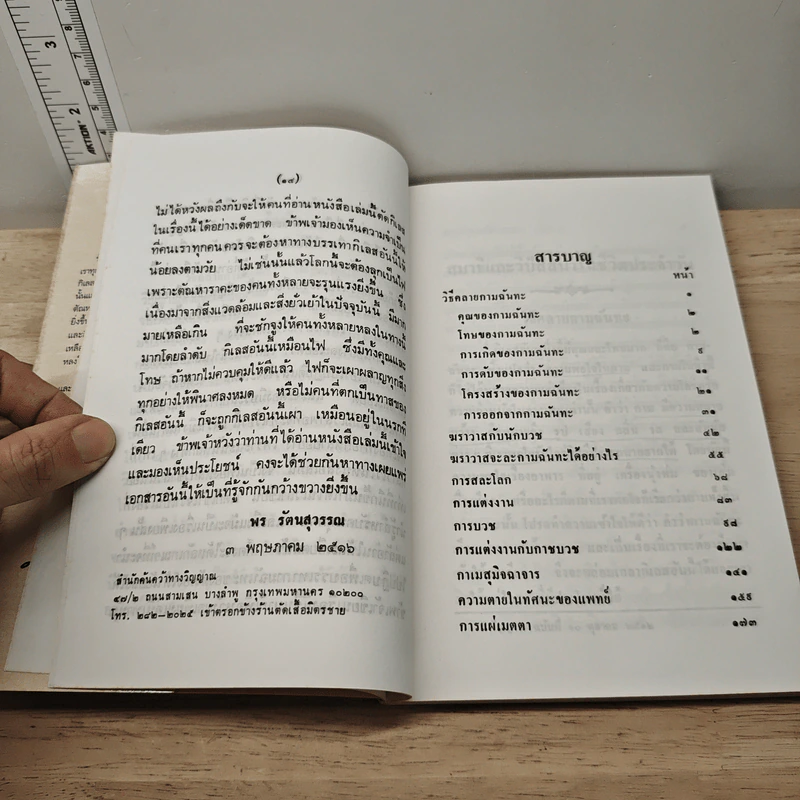 (๑๘)
ไม่ได้หวังผลถึงกับจะให้คนที่อ่านหนังสือเล่มนี้ตัดกิเลส
ในเรื่องนี้ได้อย่างเด็ดขาด ข้าพเจ้ามองเห็นความจำเป็น
ที่คนเราทุกคนควรจะต้องหาทางบรรเทากิเลสอันนี้ให้
น้อยลงตามวัย ไม่เช่นนั้นแล้วโลกนี้จะต้องลุกเป็นไฟ
เพราะตัณหาราคะของคนทั้งหลายจะรุนแรงยิ่งขึ้น ซึ่ง
เนื่องมาจากสิ่งแวดล้อมและสิ่งยั่วเย้าในปัจจุบันนี้ มีมาก
มายเหลือเกิน ที่จะชักจูงให้คนทั้งหลายหลงในทางนี้
มากโดยลำดับ กิเลสอันนี้เหมือนไฟ ซึ่งมีทั้งคุณและ
โทษ ถ้าหากไม่ควบคุมให้ดีแล้ว ไฟก็จะเผาผลาญทุกสิ่ง
ทุกอย่างให้พินาศลงหมด หรือไม่คนที่ตกเป็นทาสของ
กิเลสอันนี้ ก็จะถูกกิเลสอันนี้เผา เหมือนอยู่ในนรกที
เดียว ข้าพเจ้าหวังว่าท่านที่ได้อ่านหนังสือเล่มนี้เข้าใจ
และมองเห็นประโยชน์ คงจะได้ช่วยกันหาทางเผยแพร่
เอกสารอันนี้ให้เป็นที่รู้จักกันกว้างขวางยิ่งขึ้น
พร รัตนสุวรรณ
๓ พฤษภาคม ๒๕๑๖
สำนักค้นคว้าทางวิญญาณ
๔๗/๒ ถนนสามเสน บางลำพู กรุงเทพมหานคร ๑๐๒๐๐
โทร. ๒๘๒–๒๐๒๕ เข้าตรอกข้างร้านตัดเสื้อมิตรชาย
สารบาญ
หน้า
วิธีคลายกามฉันทะ ๑
คุณของกามฉันทะ ๒
โทษของกามฉันทะ ๒
การเกิดของกามฉันทะ ๙
การดับของกามฉันทะ ๑๑
โครงสร้างของกามฉันทะ ๒๑
การออกจากกามฉันทะ ๓๑
ฆราวาสกับนักบวช ๔๒
ฆราวาสจะละกามฉันทะได้อย่างไร ๕๕
การสละโลก ๖๘
การแต่งงาน ๘๓
การบวช ๙๘
การแต่งงานกับการบวช ๑๒๒
กาเมสุมิจฉาจาร ๑๔๑
ความตายในทัศนะของแพทย์ ๑๕๙
การแผ่เมตตา ๑๗๓
3
2
AKTION